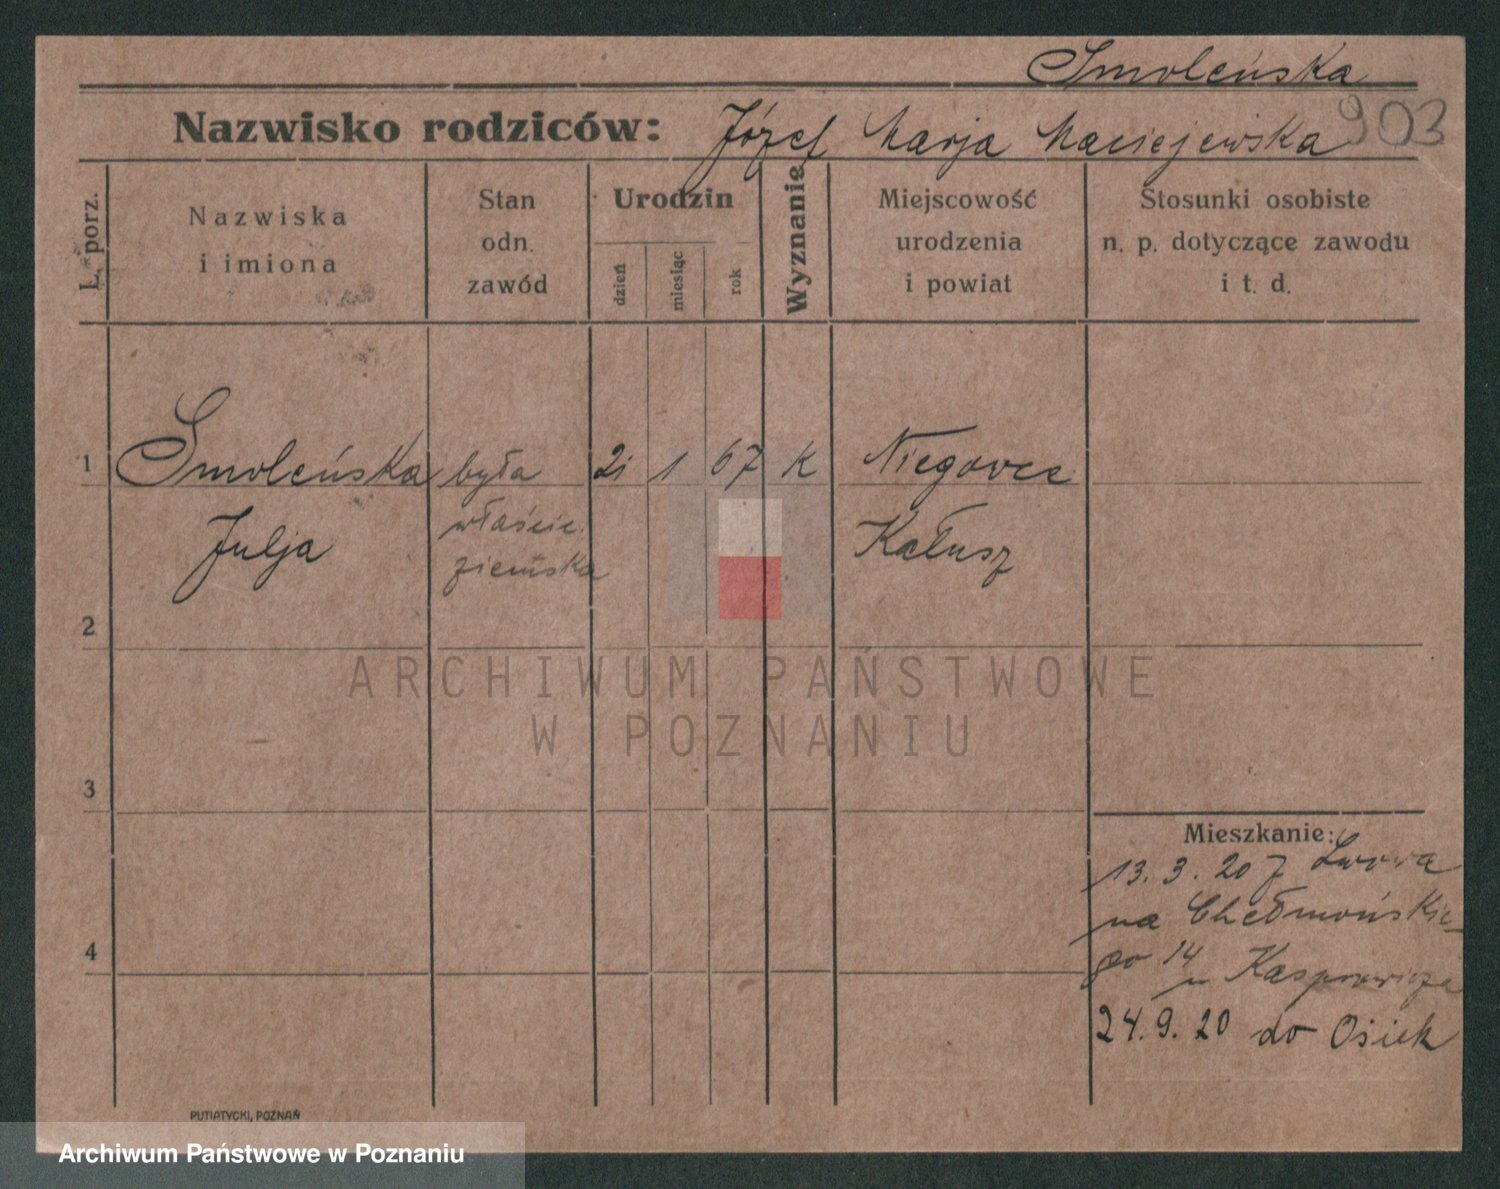 Smoleńska
903
Nazwisko rodziców: Józef Marja Maciejewska
L. porz.
Nazwiska
i imiona
Stan
odn.
zawód
Urodzin
dzień
miesiąc
rok
Wyznanie
Miejscowość
urodzenia
i powiat
Stosunki osobiste
n. p. dotyczące zawodu
i t. d.
1 Smoleńska była 21 1 67 K Niegowce
Julja właśc. Kałusz
ziemska
2
3
4
Mieszkanie:
13. 3. 20 z Lwowa
na Chełmońskie-
go 14
u Kasprowicza
24. 9. 20 do Osiek
PUTIATYCKI, POZNAŃ
ARCHIWUM PAŃSTWOWE
W POZNANIU
Archiwum Państwowe w Poznaniu